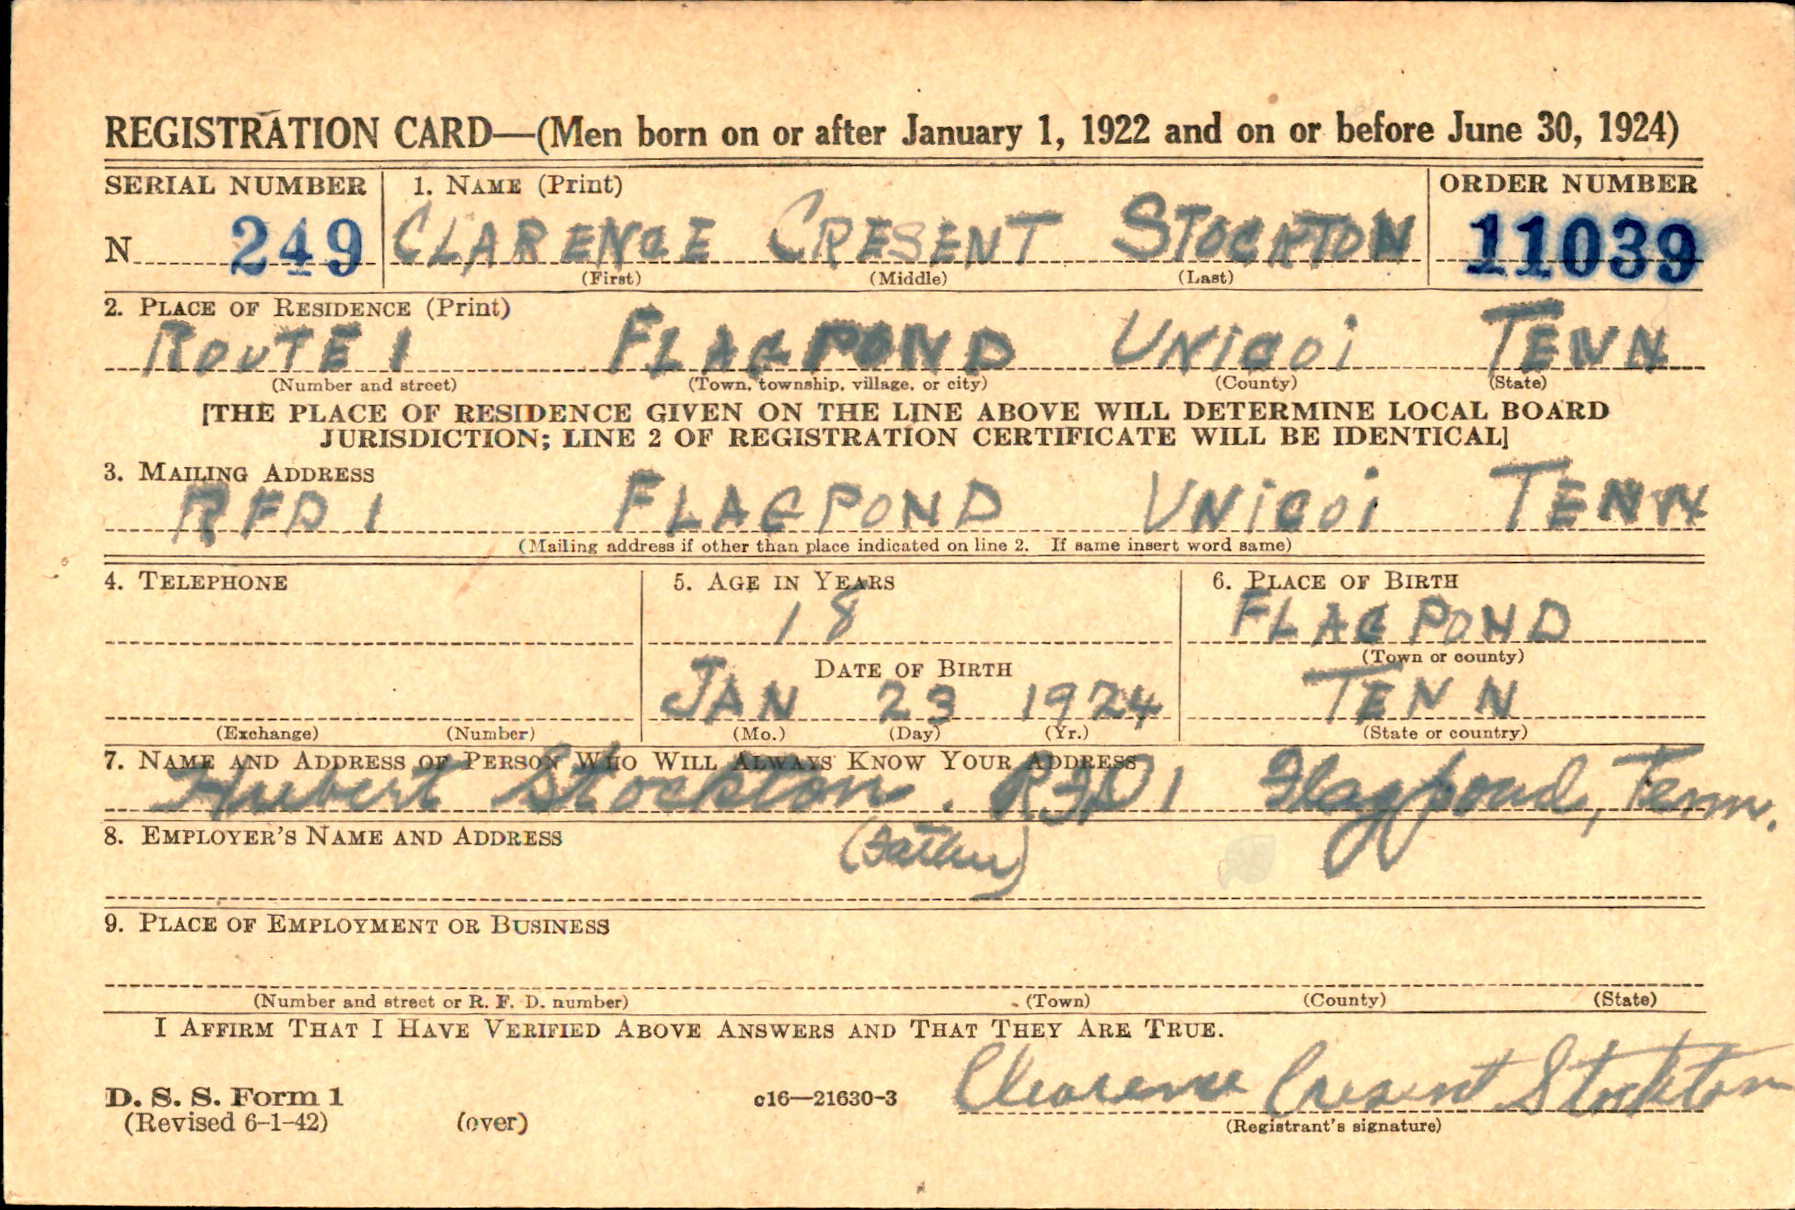 REGISTRATION CARD—(Men born on or after January 1, 1922 and on or before June 30, 1924)
SERIAL NUMBER 1. NAME (Print) ORDER NUMBER
N 249 CLARENCE CRESENT STOCKTON 11039
(First) (Middle) (Last)
2. PLACE OF RESIDENCE (Print)
ROUTE 1 FLAGPOND UNICOI TENN
(Number and street) (Town, township, village, or city) (County) (State)
[THE PLACE OF RESIDENCE GIVEN ON THE LINE ABOVE WILL DETERMINE LOCAL BOARD
JURISDICTION; LINE 2 OF REGISTRATION CERTIFICATE WILL BE IDENTICAL]
3. MAILING ADDRESS
RFD 1 FLAGPOND UNICOI TENN
(Mailing address if other than place indicated on line 2. If same insert word same)
4. TELEPHONE 5. AGE IN YEARS 6. PLACE OF BIRTH
18 FLAG POND
(Town or county)
DATE OF BIRTH
JAN 23 1924 TENN
(Exchange) (Number) (Mo.) (Day) (Yr.) (State or country)
7. NAME AND ADDRESS OF PERSON WHO WILL ALWAYS KNOW YOUR ADDRESS
Hubert Stockton. RFD 1 Flagpond, Tenn.
8. EMPLOYER'S NAME AND ADDRESS (Father)
9. PLACE OF EMPLOYMENT OR BUSINESS
(Number and street or R. F. D. number) (Town) (County) (State)
I AFFIRM THAT I HAVE VERIFIED ABOVE ANSWERS AND THAT THEY ARE TRUE.
D. S. S. Form 1 c16—21630-3 Clearence Cresent Stockton
(Revised 6-1-42) (over) (Registrant's signature)